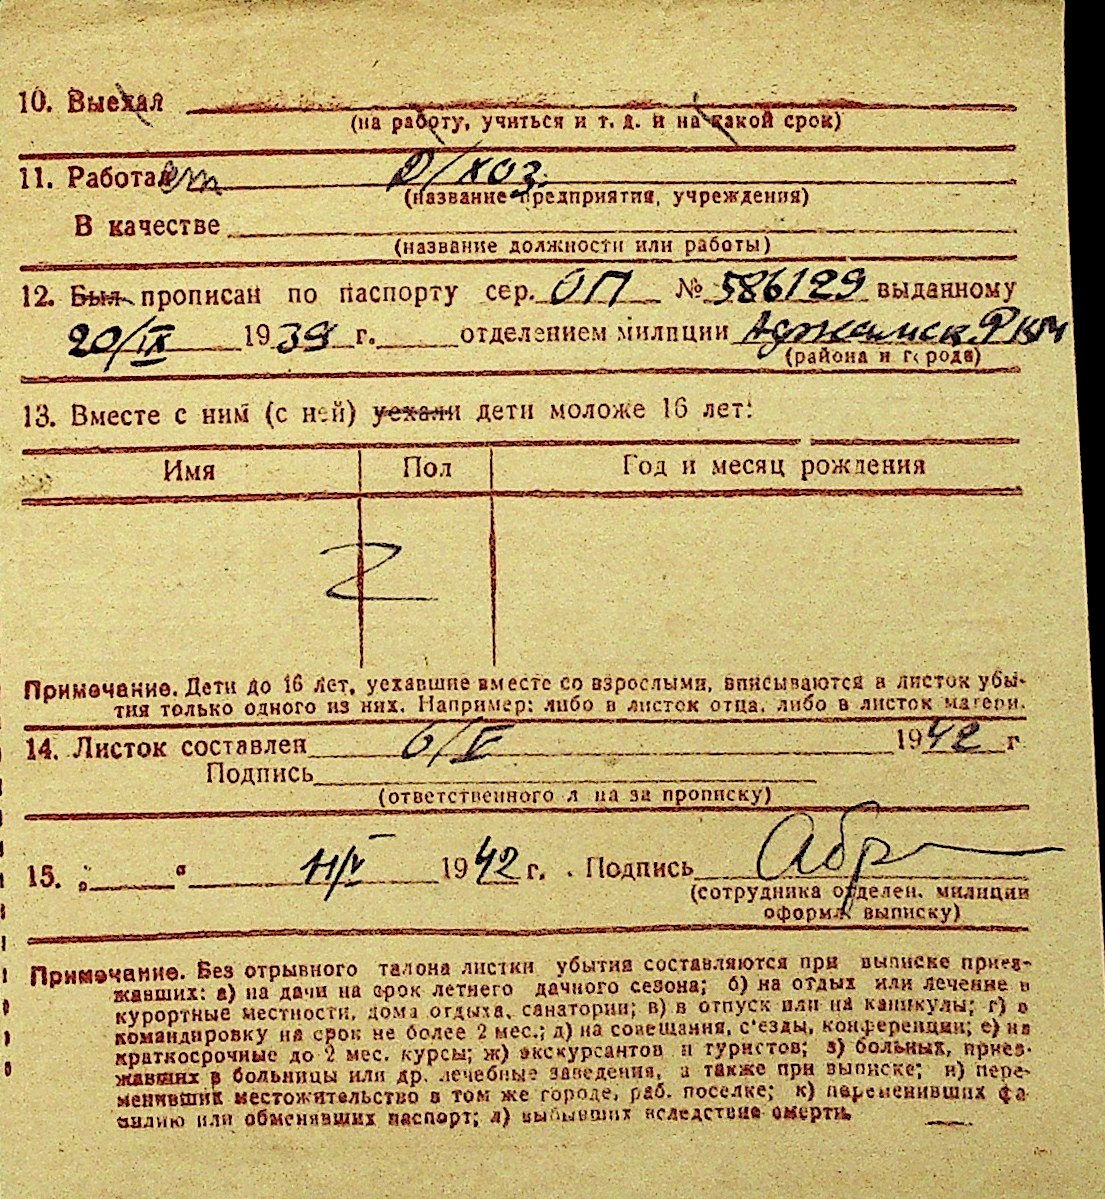 10. Выехал
(на работу, учиться и т. д. и на какой срок)
11. Работает Д/хоз.
(название предприятия, учреждения)
В качестве
(название должности или работы)
12. Был прописан по паспорту сер. ОП № 586129 выданному
20/IX 1939 г. отделением милиции Аджамск. РКМ
(района и города)
13. Вместе с ним (с ней) уехали дети моложе 16 лет:
Имя Пол Год и месяц рождения
Z
Примечание. Дети до 16 лет, уехавшие вместе со взрослыми, вписываются в листок убы-
тия только одного из них. Например: либо в листок отца, либо в листок матери.
14. Листок составлен 6/V 1942 г
Подпись
(ответственного л на за прописку)
15. „ “ 1942 г. Подпись
(сотрудника отделен. милиции
оформл выписку)
Примечание. Без отрывного талона листки убытия составляются при выписке приез-
жавших: а) на дачи на срок летнего дачного сезона; б) на отдых или лечение в
курортные местности, дома отдыха, санатории; в) в отпуск или на каникулы; г) в
командировку на срок не более 2 мес.; д) на совещания, с'езды, конференции; е) на
краткосрочные до 2 мес. курсы; ж) экскурсантов и туристов; з) больных, приез-
жавших в больницы или др. лечебные заведения, а также при выписке; и) пере-
менивших местожительство в том же городе, раб. поселке; к) переменивших фа
милию или обменявших паспорт; л) выбывших вследствие смерти.